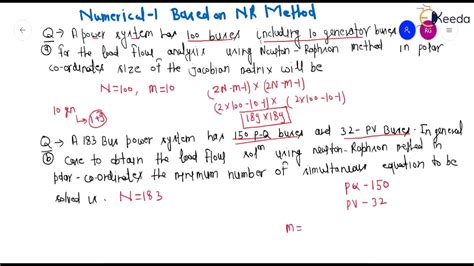 Numerical-1 Based on NR Method
Ekeeda
RG
Q → A power system has 100 buses including 10 generator buses
(a) for the load flow analysis using Newton-Raphson method in polar
co-ordinates size of the jacobian matrix will be
N=100, m=10 (2N-m-1) × (2N-m-1)
(2×100-10-1) × (2×100-10-1)
10 gen
→ (1+9)
189×189
Q → A 183 Bus power system has 150 P-Q buses and 32- PV Buses. In general
(b) case to obtain the load flow solⁿ using newton-Raphson method in
polar-co-ordinates the minimum number of simultaneous equation to be
solved is. N=183
PQ - 150
PV - 32
m=